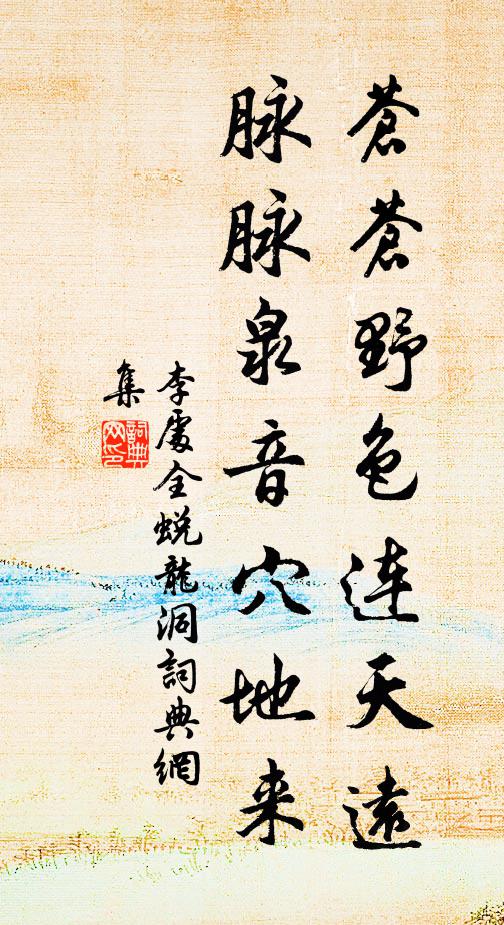 蒼蒼野色連天遠
脉脉泉音穴地来
李處全蜕龍洞詞典網
集
詞典
网印